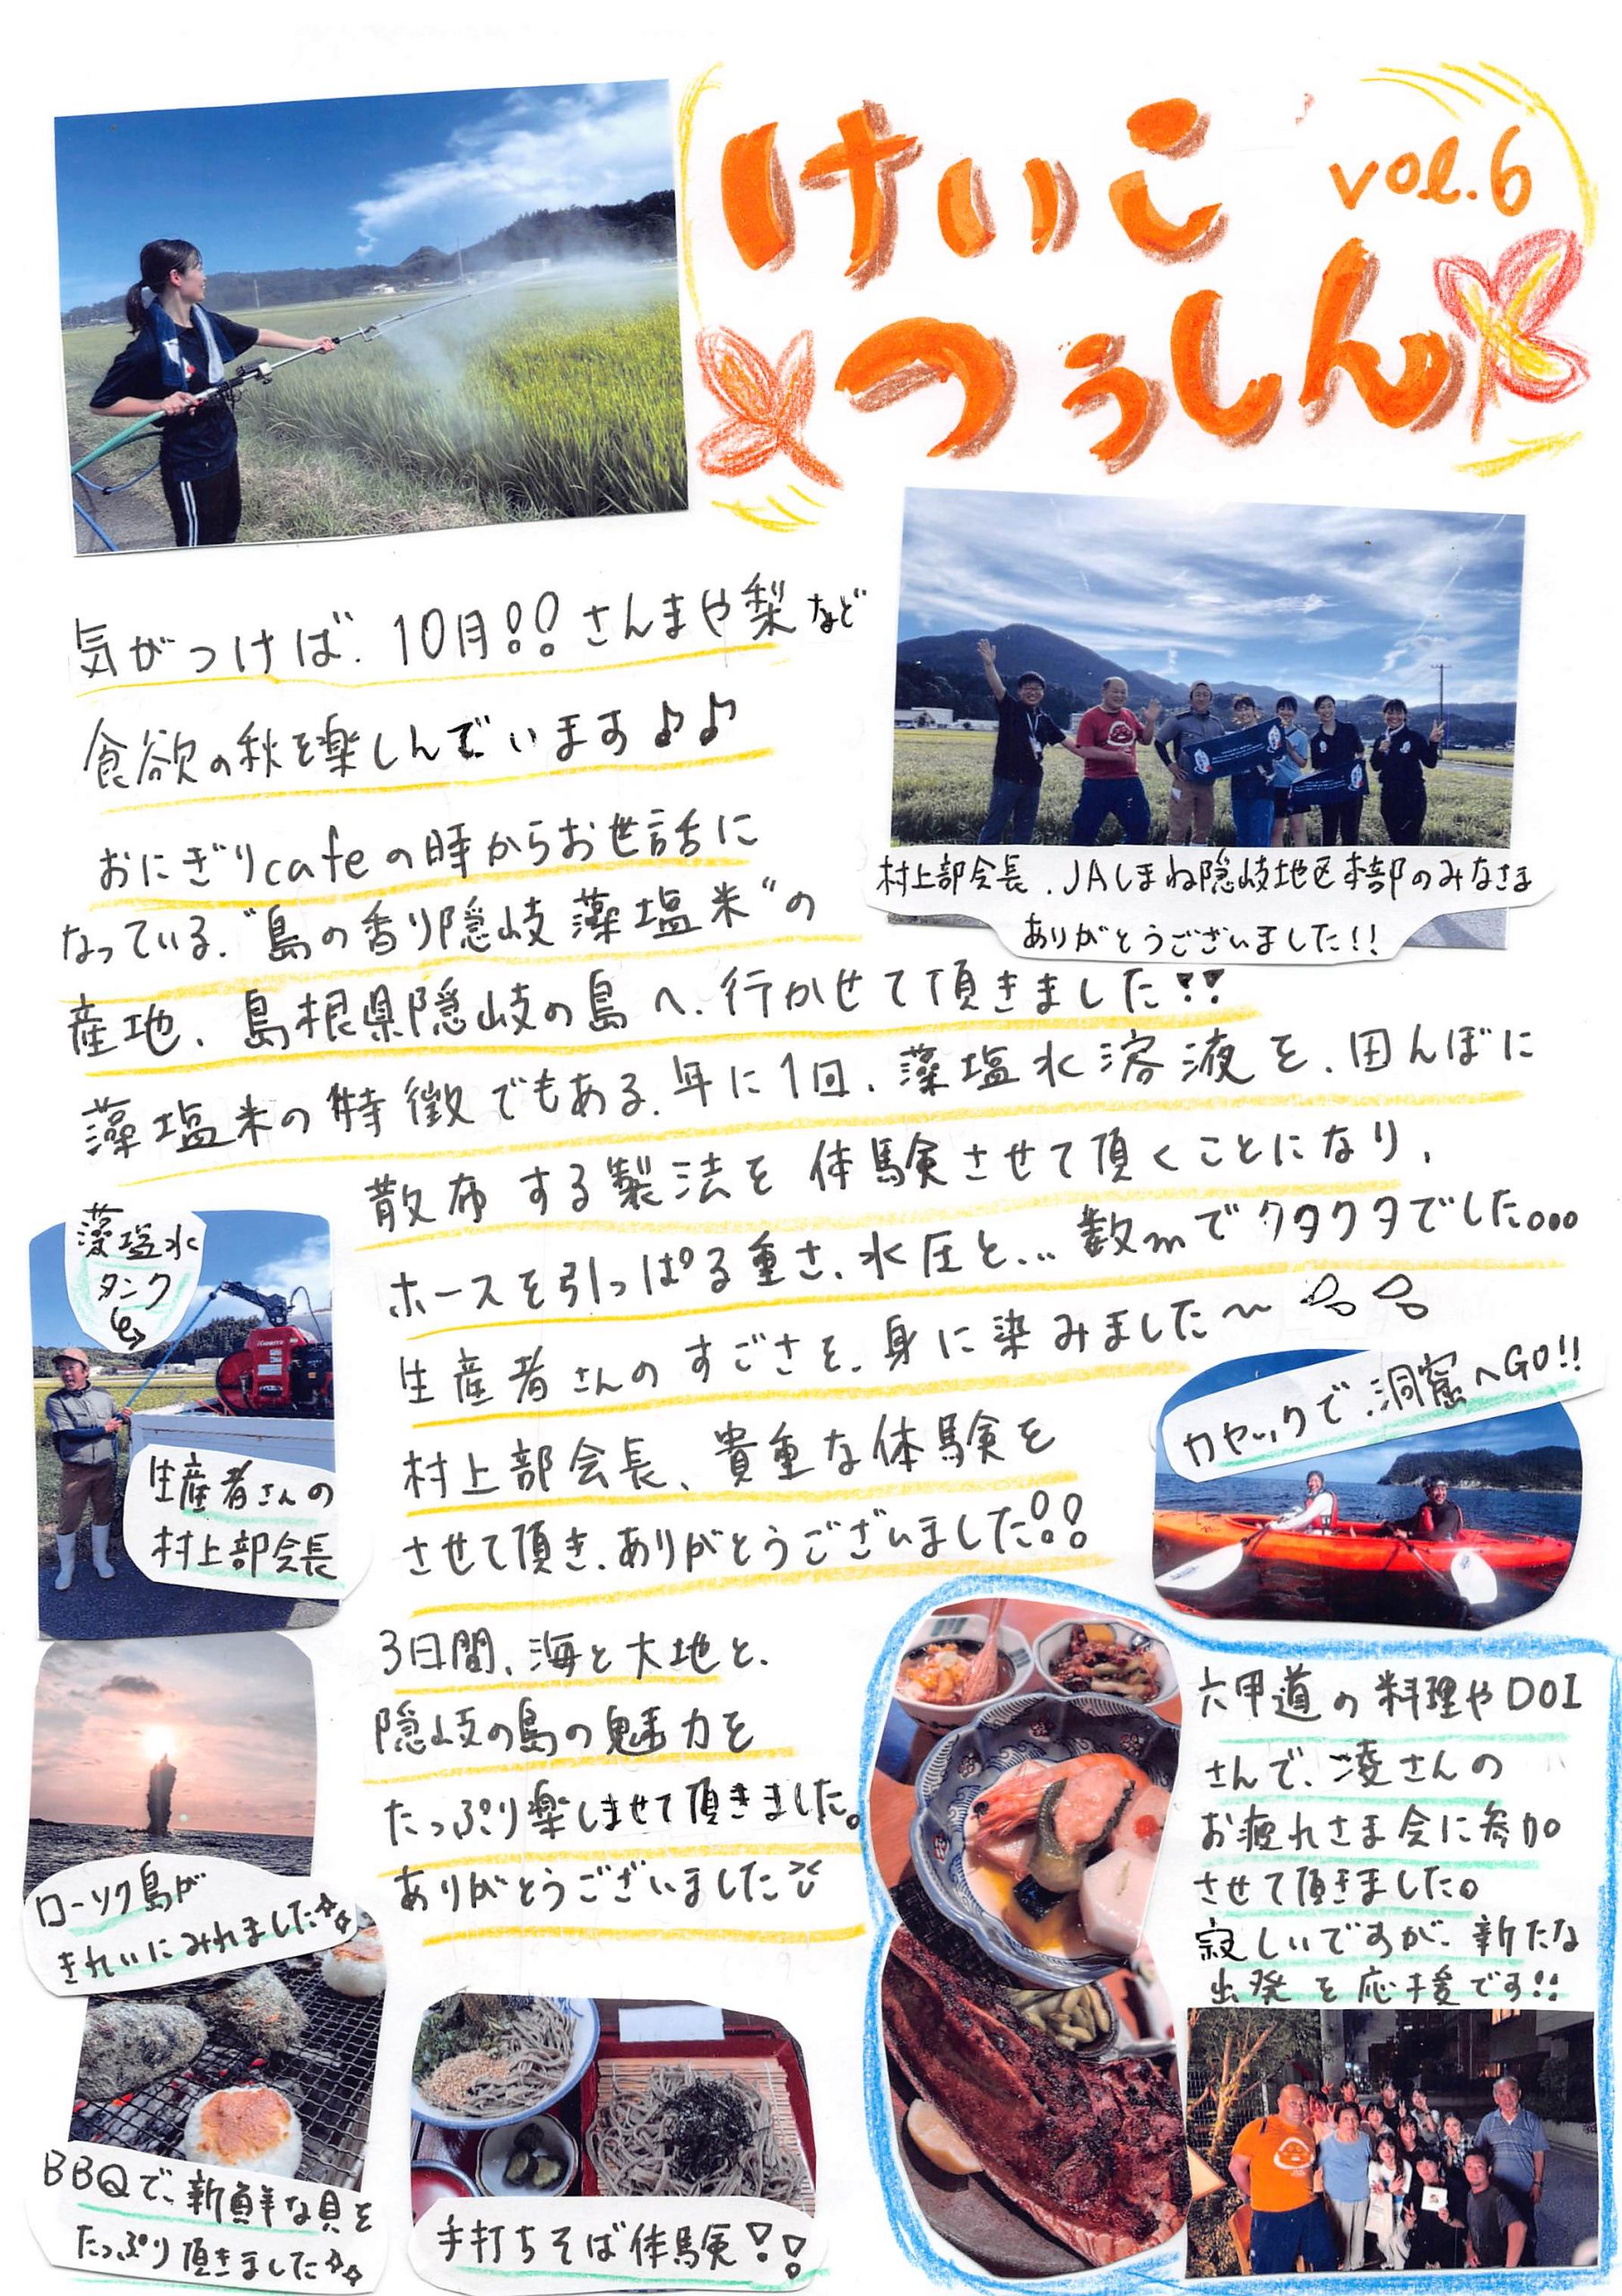 けいこ
つぅしん
vol.6
気がつけば、10月!! さんまや梨など
食欲の秋を楽しんでいます♪♪
おにぎりcafeの時からお世話に
なっている、"島の香り隠岐藻塩米"の
産地、島根県隠岐の島へ、行かせて頂きました!!
藻塩米の特徴でもある、年に1回、藻塩水溶液を、田んぼに
散布する製法を体験させて頂くことになり、
ホースを引っぱる重さ、水圧と... 数mでクタクタでした。。。
生産者さんのすごさを、身に染みました〜
村上部会長、貴重な体験を
させて頂き、ありがとうございました!!
3日間、海と大地と、
隠岐の島の魅力を
たっぷり楽しませて頂きました。
ありがとうございました
村上部会長、JAしまね隠岐地区本部のみなさま
ありがとうございました!!
藻塩水
タンク
生産者さんの
村上部会長
カヤックで、洞窟へGO!!
ローソク島が
きれいにみれました☆☆
BBQで、新鮮な貝を
たっぷり頂きました☆☆
手打ちそば体験!!
六甲道の料理やDOI
さんで、凌さんの
お疲れさま会に参加
させて頂きました。
寂しいですが、新たな
出発を応援です!!